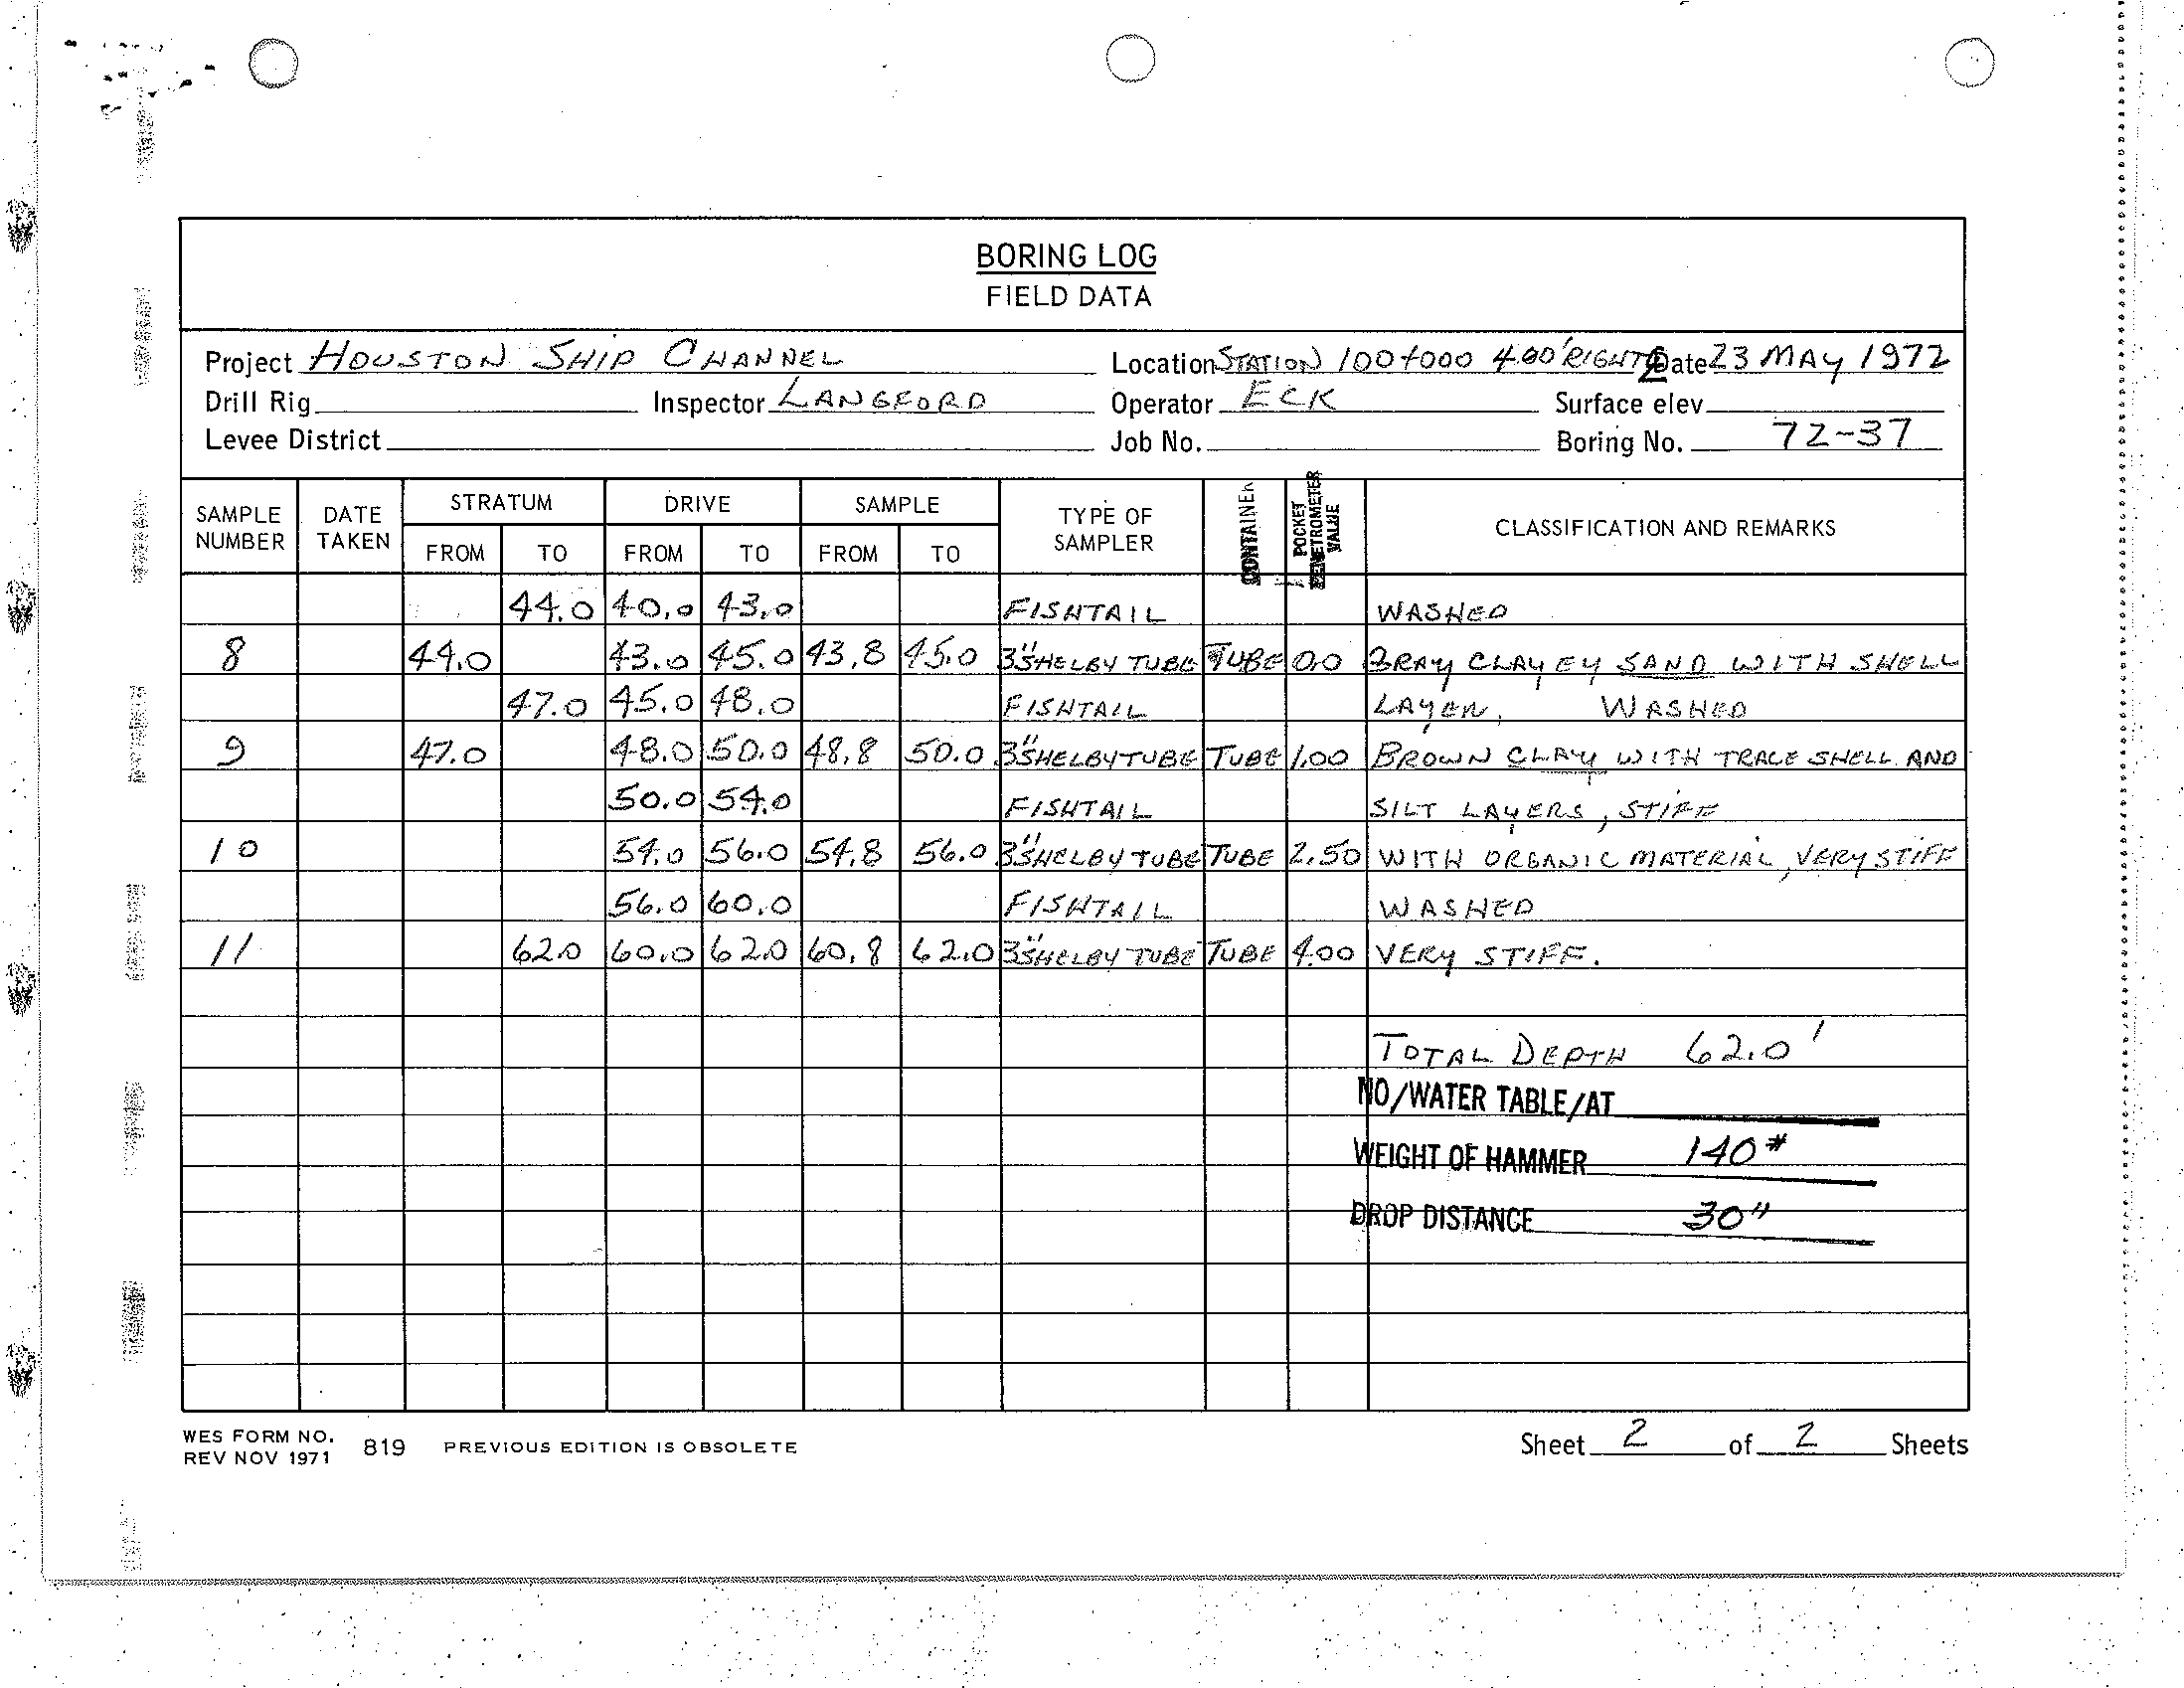 BORING LOG
FIELD DATA
Project HOUSTON SHIP CHANNEL Location STATION 100+000 400' RIGHT ℄ Date 23 MAY 1972
Drill Rig Inspector LANGFORD Operator ECK Surface elev.
Levee District Job No. Boring No. 72-37
SAMPLE NUMBER DATE TAKEN STRATUM FROM TO DRIVE FROM TO SAMPLE FROM TO TYPE OF SAMPLER CONTAINER POCKET PENETROMETER VALUE CLASSIFICATION AND REMARKS
44.0 40.0 43.0 FISHTAIL WASHED
8 44.0 43.0 45.0 43.8 45.0 3" SHELBY TUBE TUBE 0.0 GRAY CLAYEY SAND WITH SHELL
47.0 45.0 48.0 FISHTAIL LAYER, WASHED
9 47.0 48.0 50.0 48.8 50.0 3" SHELBY TUBE TUBE 1.00 BROWN CLAY WITH TRACE SHELL AND
50.0 54.0 FISHTAIL SILT LAYERS, STIFF
10 54.0 56.0 54.8 56.0 3" SHELBY TUBE TUBE 2.50 WITH ORGANIC MATERIAL, VERY STIFF
56.0 60.0 FISHTAIL WASHED
11 62.0 60.0 62.0 60.8 62.0 3" SHELBY TUBE TUBE 4.00 VERY STIFF.
TOTAL DEPTH 62.0'
NO/WATER TABLE/AT
WEIGHT OF HAMMER 140#
DROP DISTANCE 30"
WES FORM NO. REV NOV 1971 819 PREVIOUS EDITION IS OBSOLETE Sheet 2 of 2 Sheets